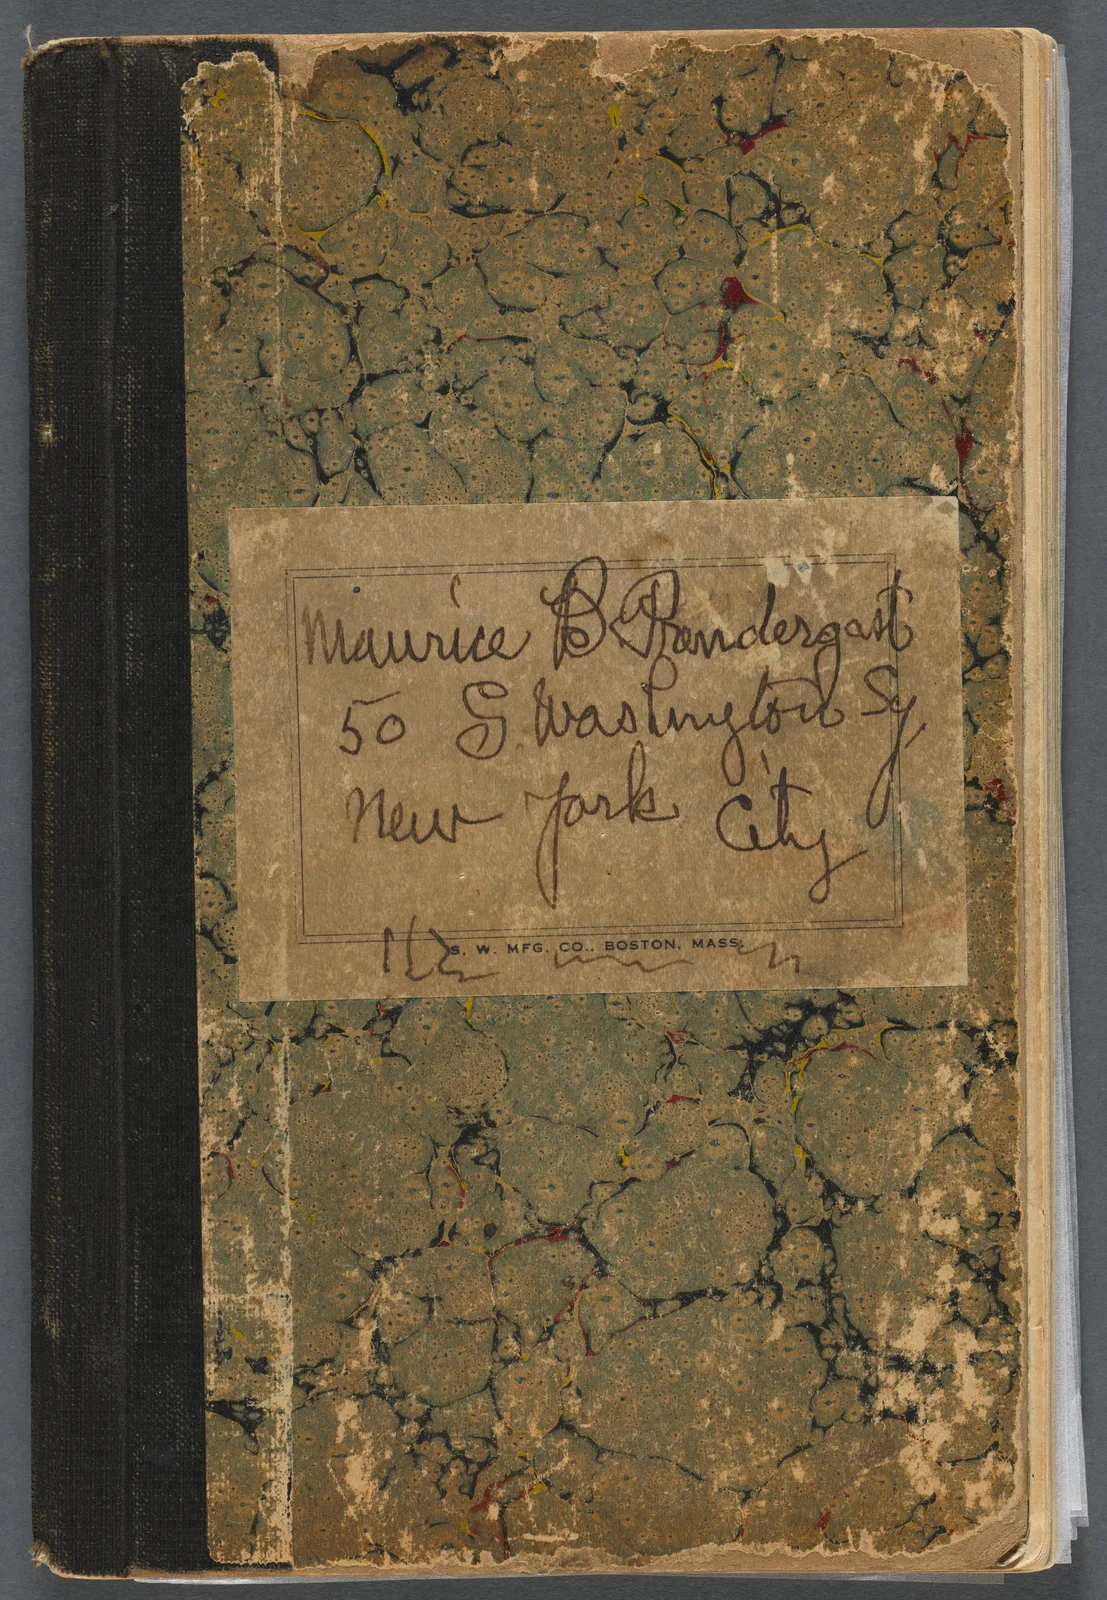 Maurice B Prendergast
50 S. Washington Sq,
New York City
S. W. MFG. CO., BOSTON, MASS.